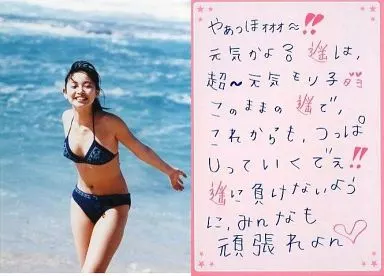 やぁっほォォォ〜!!
元気かよ? 遥は、
超〜元気モリ子
このままの遥で、
これからも、つっぱ
しっていくでぇ!!
遥に負けないよう
に、みんなも
頑張れよん